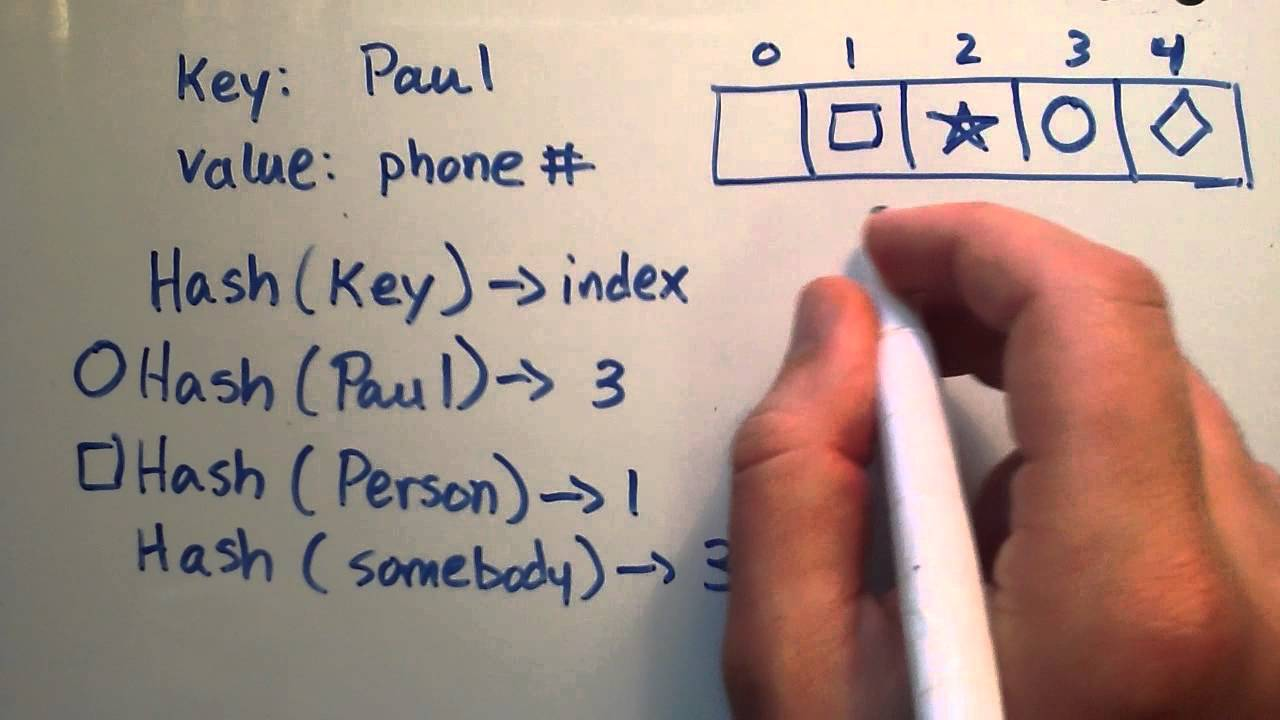 Key: Paul
value: phone #
0 1 2 3 4
Hash (Key) -> index
Hash (Paul) -> 3
Hash (Person) -> 1
Hash (somebody) -> 3